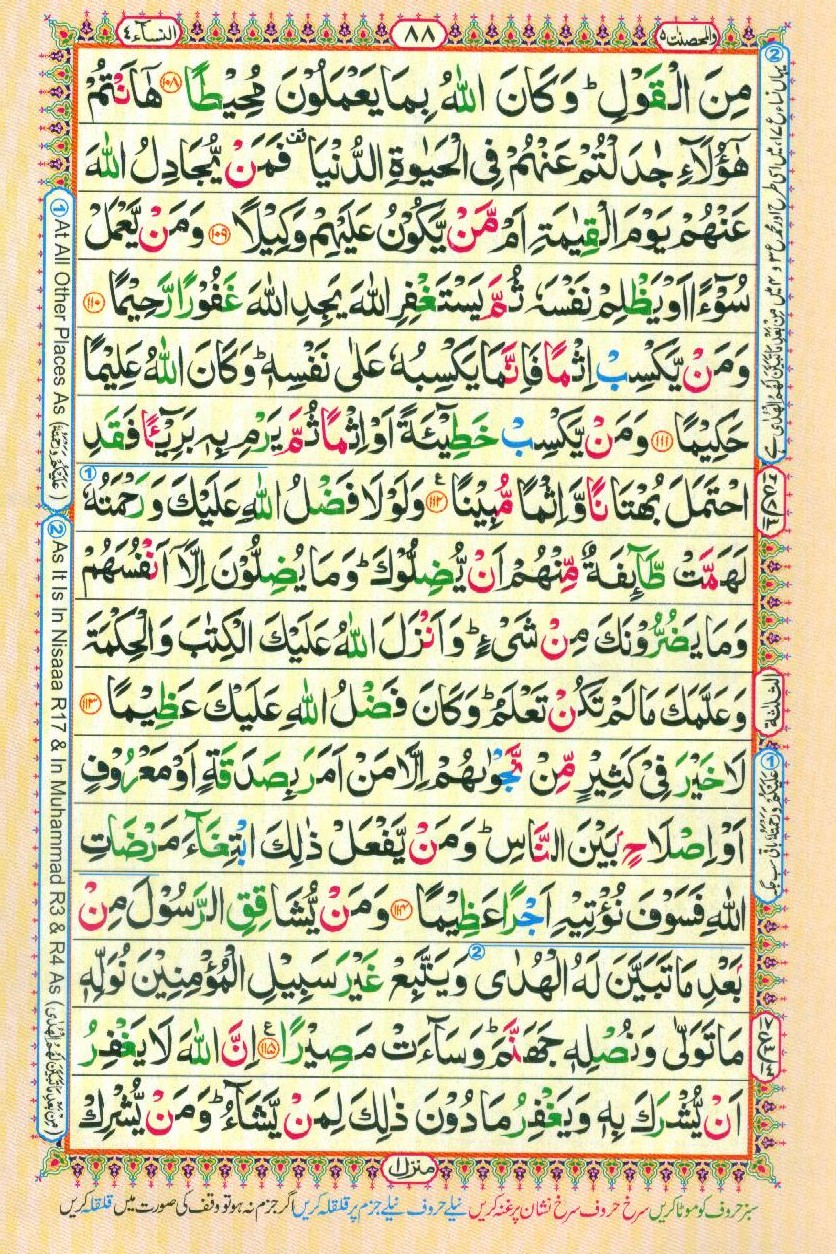 والمحصنت ٥
٨٨
النسآء ٤
مِنَ الْقَوْلِ ؕ وَكَانَ اللّٰهُ بِمَا يَعْمَلُوْنَ مُحِيْطًا ﴿۱۰۸﴾ هٰۤاَنْتُمْ
هٰۤؤُلَآءِ جٰدَلْتُمْ عَنْهُمْ فِى الْحَيٰوةِ الدُّنْيَا ۫ فَمَنْ يُّجَادِلُ اللّٰهَ
عَنْهُمْ يَوْمَ الْقِيٰمَةِ اَمْ مَّنْ يَّكُوْنُ عَلَيْهِمْ وَكِيْلًا ﴿۱۰۹﴾ وَمَنْ يَّعْمَلْ
سُوْٓءًا اَوْ يَظْلِمْ نَفْسَهٗ ثُمَّ يَسْتَغْفِرِ اللّٰهَ يَجِدِ اللّٰهَ غَفُوْرًا رَّحِيْمًا ﴿۱۱۰﴾
وَمَنْ يَّكْسِبْ اِثْمًا فَاِنَّمَا يَكْسِبُهٗ عَلٰى نَفْسِهٖ ؕ وَكَانَ اللّٰهُ عَلِيْمًا
حَكِيْمًا ﴿۱۱۱﴾ وَمَنْ يَّكْسِبْ خَطِيْٓئَةً اَوْ اِثْمًا ثُمَّ يَرْمِ بِهٖ بَرِيْٓــًٔا فَقَدِ
احْتَمَلَ بُهْتَانًا وَّاِثْمًا مُّبِيْنًا ﴿۱۱۲﴾ ع وَلَوْلَا فَضْلُ اللّٰهِ عَلَيْكَ وَرَحْمَتُهٗ ①
لَهَمَّتْ طَّآئِفَةٌ مِّنْهُمْ اَنْ يُّضِلُّوْكَ ؕ وَمَا يُضِلُّوْنَ اِلَّاۤ اَنْفُسَهُمْ
وَمَا يَضُرُّوْنَكَ مِنْ شَىْءٍ ؕ وَاَنْزَلَ اللّٰهُ عَلَيْكَ الْكِتٰبَ وَالْحِكْمَةَ
وَعَلَّمَكَ مَا لَمْ تَكُنْ تَعْلَمُ ؕ وَكَانَ فَضْلُ اللّٰهِ عَلَيْكَ عَظِيْمًا ﴿۱۱۳﴾
لَا خَيْرَ فِىْ كَثِيْرٍ مِّنْ نَّجْوٰىهُمْ اِلَّا مَنْ اَمَرَ بِصَدَقَةٍ اَوْ مَعْرُوْفٍ
اَوْ اِصْلَاحٍۢ بَيْنَ النَّاسِ ؕ وَمَنْ يَّفْعَلْ ذٰلِكَ ابْتِغَآءَ مَرْضَاتِ
اللّٰهِ فَسَوْفَ نُؤْتِيْهِ اَجْرًا عَظِيْمًا ﴿۱۱۴﴾ وَمَنْ يُّشَاقِقِ الرَّسُوْلَ مِنْۢ
بَعْدِ مَا تَبَيَّنَ لَهُ الْهُدٰى ② وَيَتَّبِعْ غَيْرَ سَبِيْلِ الْمُؤْمِنِيْنَ نُوَلِّهٖ
مَا تَوَلّٰى وَنُصْلِهٖ جَهَنَّمَ ؕ وَسَآءَتْ مَصِيْرًا ﴿۱۱۵﴾ ع اِنَّ اللّٰهَ لَا يَغْفِرُ
اَنْ يُّشْرَكَ بِهٖ وَيَغْفِرُ مَا دُوْنَ ذٰلِكَ لِمَنْ يَّشَآءُ ؕ وَمَنْ يُّشْرِكْ
الثلثة
① At All Other Places As (عَلَيْكُمْ وَرَحْمَتُهٗ)
② As It Is In Nisaaa R17 & In Muhammad R3 & R4 As (مِنْۢ بَعْدِ مَا تَبَيَّنَ لَهُمُ الْهُدٰى)
① عَلَيْكُمْ وَرَحْمَتُهٗ باقی سب جگہ
منزل ١
سبز حروف کو موٹا کریں سرخ حروف سرخ نشان پر غنہ کریں نیلے حروف نیلے جزم پر قلقلہ کریں اگر جزم نہ ہو تو وقف کی صورت میں قلقلہ کریں